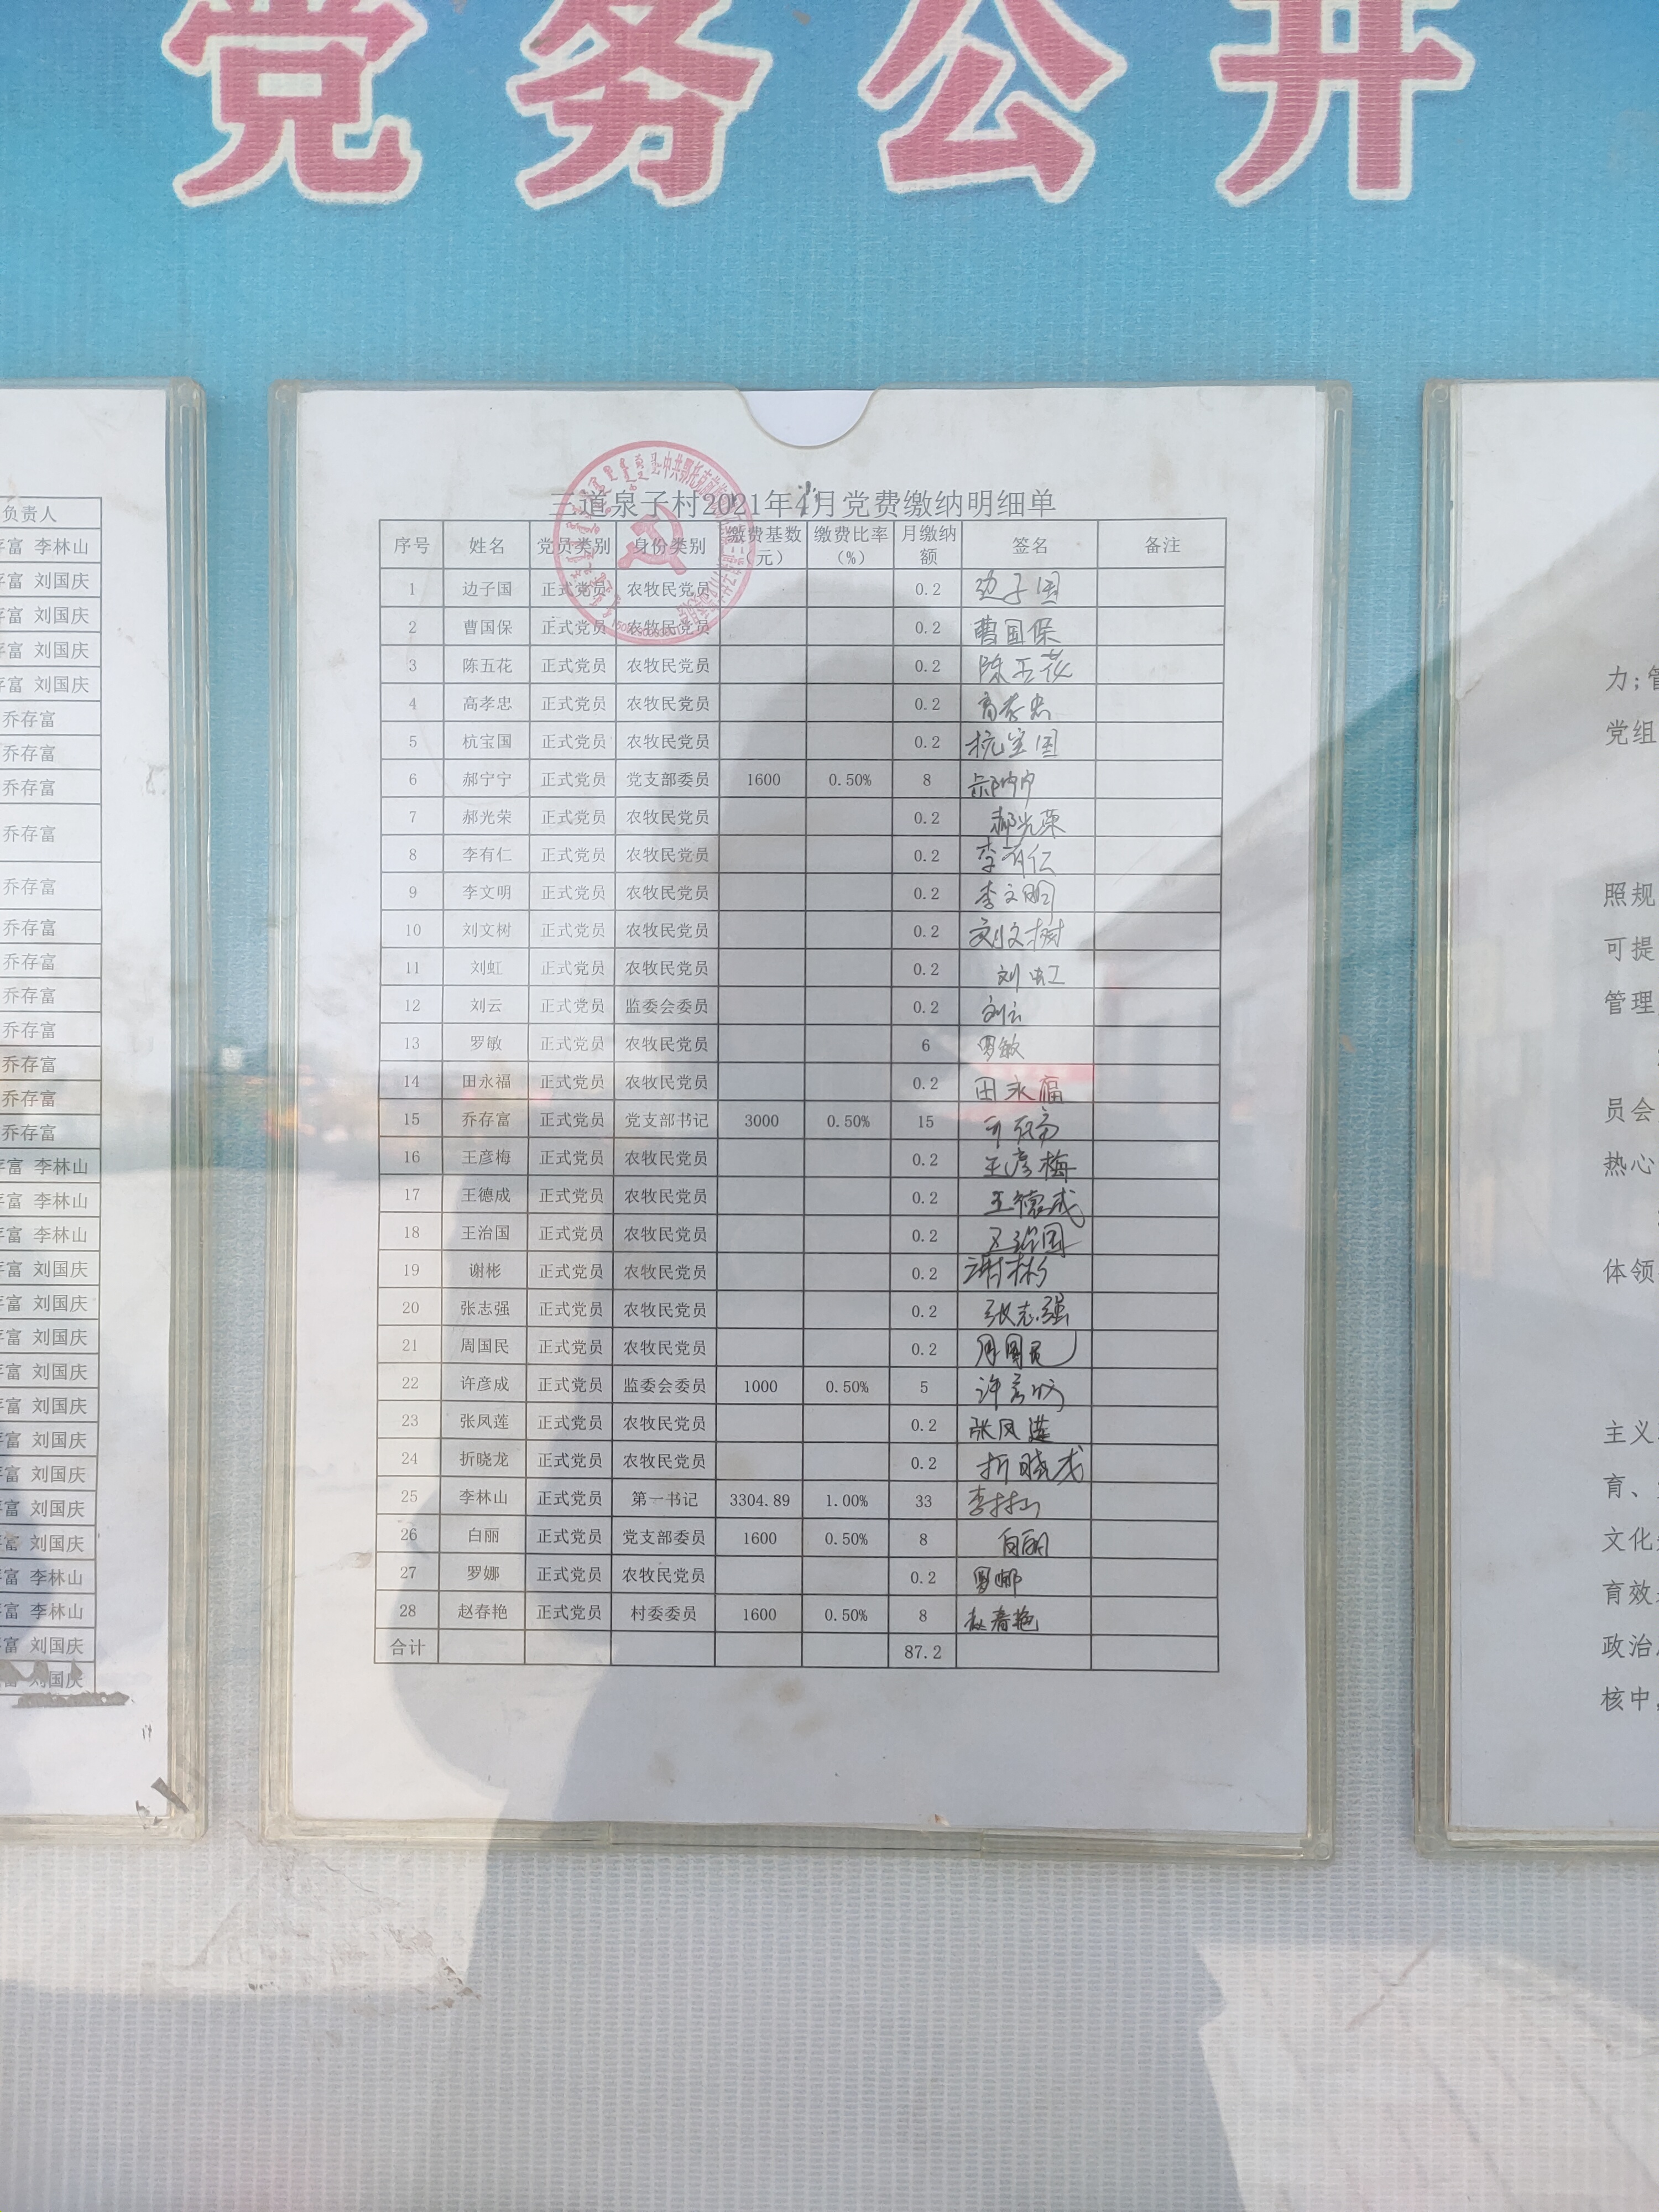 党务公开
负责人
富 李林山
富 刘国庆
富 刘国庆
富 刘国庆
富 刘国庆
乔存富
乔存富
乔存富
乔存富
乔存富
乔存富
乔存富
乔存富
乔存富
乔存富
乔存富
乔存富
富 李林山
富 李林山
富 李林山
富 刘国庆
富 刘国庆
富 刘国庆
富 刘国庆
富 刘国庆
富 刘国庆
富 刘国庆
富 刘国庆
富 刘国庆
富 李林山
富 李林山
富 刘国庆
富 刘国庆
三道泉子村2021年4月党费缴纳明细单
序号 姓名 党员类别 身份类别 缴费基数（元） 缴费比率（%） 月缴纳额 签名 备注
1 边子国 正式党员 农牧民党员 0.2 边子国
2 曹国保 正式党员 农牧民党员 0.2 曹国保
3 陈五花 正式党员 农牧民党员 0.2 陈五花
4 高孝忠 正式党员 农牧民党员 0.2 高孝忠
5 杭宝国 正式党员 农牧民党员 0.2 杭宝国
6 郝宁宁 正式党员 党支部委员 1600 0.50% 8 郝宁宁
7 郝光荣 正式党员 农牧民党员 0.2 郝光荣
8 李有仁 正式党员 农牧民党员 0.2 李有仁
9 李文明 正式党员 农牧民党员 0.2 李文明
10 刘文树 正式党员 农牧民党员 0.2 刘文树
11 刘虹 正式党员 农牧民党员 0.2 刘虹
12 刘云 正式党员 监委会委员 0.2 刘云
13 罗敏 正式党员 农牧民党员 6 罗敏
14 田永福 正式党员 农牧民党员 0.2 田永福
15 乔存富 正式党员 党支部书记 3000 0.50% 15 乔存富
16 王彦梅 正式党员 农牧民党员 0.2 王彦梅
17 王德成 正式党员 农牧民党员 0.2 王德成
18 王治国 正式党员 农牧民党员 0.2 王治国
19 谢彬 正式党员 农牧民党员 0.2 谢彬
20 张志强 正式党员 农牧民党员 0.2 张志强
21 周国民 正式党员 农牧民党员 0.2 周国民
22 许彦成 正式党员 监委会委员 1000 0.50% 5 许彦成
23 张凤莲 正式党员 农牧民党员 0.2 张凤莲
24 折晓龙 正式党员 农牧民党员 0.2 折晓龙
25 李林山 正式党员 第一书记 3304.89 1.00% 33 李林山
26 白丽 正式党员 党支部委员 1600 0.50% 8 白丽
27 罗娜 正式党员 农牧民党员 0.2 罗娜
28 赵春艳 正式党员 村委委员 1600 0.50% 8 赵春艳
合计 87.2
力；管
党组
照规
可提
管理
员会
热心
体领
主义
育、
文化
育效
政治
核中